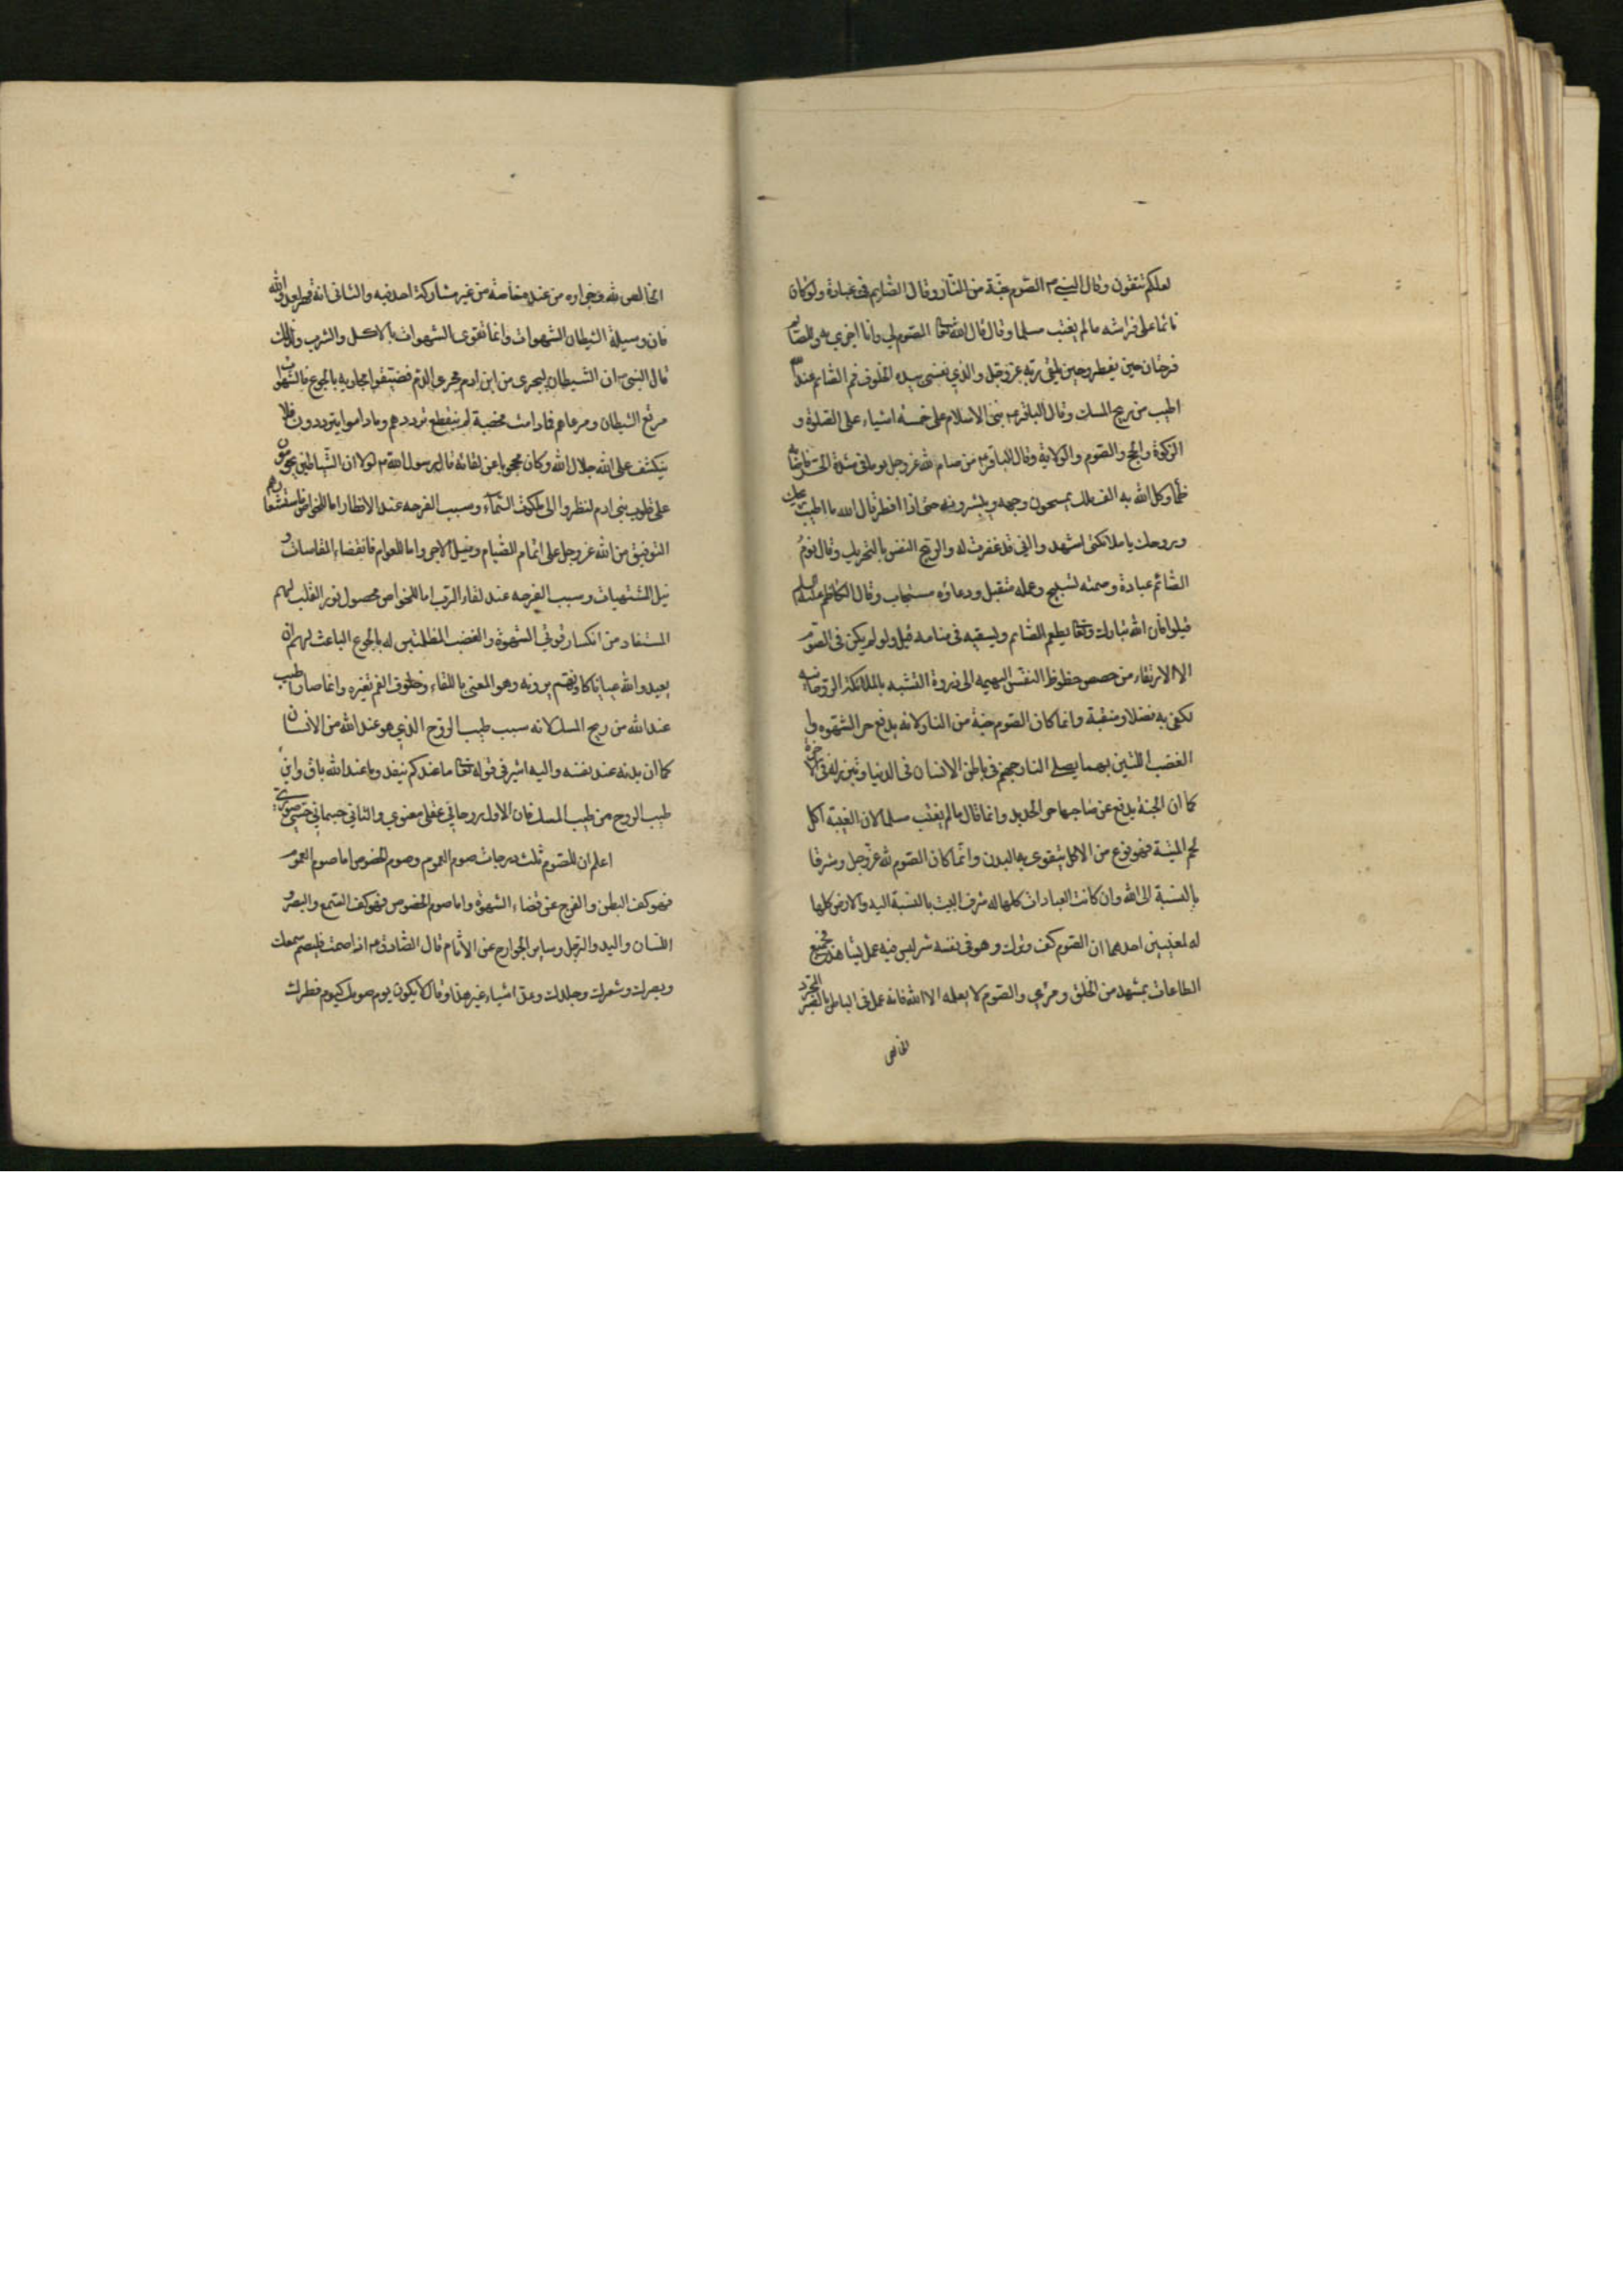 لعلكم تتقون وقال النبي ص الصوم جنة من النار وقال الصايم في عبادة ولو كان
نائما على فراشه ما لم يغتب مسلما وقال قال الله تعالى الصوم لي وانا اجزي به وللصايم
فرحتان حين يفطر وحين يلقى ربه عز وجل والذي نفسي بيده لخلوف فم الصائم عند الله
اطيب من ريح المسك وقال الباقر ع بني الاسلام على خمسة اشياء على الصلوة و
الزكوة والحج والصوم والولاية وقال الباقر ع من صام لله عز وجل يوما في شدة الحر فاصابه
ظمأ وكل الله به الف ملك يمسحون وجهه ويبشرونه حتى اذا افطر قال الله ما اطيب ريحك
وروحك يا ملائكتي اشهدوا اني قد غفرت له والروح النفس بالتحريك وقال نوم
الصائم عبادة وصمته تسبيح وعمله متقبل ودعاؤه مستجاب وقال الكاظم عليه السلم
قيلوا فان الله تبارك وتعالى يطعم الصايم ويسقيه في منامه قيل ولو لم يكن في الصوم
الا الارتقاء من حضيض حظوظ النفس البهيمية الى ذروة التشبه بالملائكة الروحانية
لكفى به فضلا ومنقبة وانما كان الصوم جنة من النار لانه يدفع حر الشهوة و
الغضب اللتين بهما يصلى النار جهنم في باطن الانسان في الدنيا وتبرز له في الاخرة
كما ان الجنة يدفع عن صاحبها حر الحديد وانما قال ما لم يغتب مسلما لان الغيبة اكل
لحم الميتة فهو نوع من الاكل يتقوى به البدن وانما كان الصوم لله عز وجل ومشرفا
بالنسبة الى الله وان كانت العبادات كلها له شرف البيت بالنسبة اليه والارض كلها
له لمعنيين احدهما ان الصوم كف وترك وهو في نفسه سر ليس فيه عمل يشاهد فجميع
الطاعات بمشهد من الخلق ومرءى والصوم لا يعلمه الا الله فانه عمل في الباطن بالصبر المجرد
الخالص
الخالص لله وجزاؤه من عنده خاصة من غير مشاركة احد فيه والثاني انه قهر لعدو الله
فان وسيلة الشيطان الشهوات وانما تقوى الشهوات بالاكل والشرب ولذلك
قال النبي ص ان الشيطان ليجري من ابن ادم مجرى الدم فضيقوا مجاريه بالجوع فالشهوات
مرتع الشيطان ومرعاهم فما دامت مخصبة لم ينقطع ترددهم وما داموا يترددون فلا
ينكشف على الله جلال الله وكان محجوبا عن لقائه قال رسول الله ص لولا ان الشياطين يحومون
على قلوب بني ادم لنظروا الى ملكوت السماء وسبب الفرحه عند الافطار اما للخواص فاستشعارهم
التوفيق من الله عز وجل على اتمام الصيام ونيل الاجر واما للعوام فانقضاء المقاسات و
نيل المشتهيات وسبب الفرحه عند لقاء الرب اما للخواص فحصول نور القلب لهم
المستفاد من انكسار قوتي الشهوة والغضب المظلمتين له بالجوع الباعث لهم ان
يعبدوا الله عيانا كانهم يرونه وهو المعنى باللقاء وخلوف الفم تغيره وانما صار اطيب
عند الله من ريح المسك لانه سبب طيب الروح الذي هو عند الله من الانسان
كما ان بدنه عند نفسه واليه اشير في قوله تعالى ما عندكم ينفد وما عند الله باق واين
طيب الروح من طيب المسك فان الاول روحاني عقلي معنوي والثاني جسماني حسي صوري
اعلم ان للصوم ثلث درجات صوم العموم وصوم الخصوص اما صوم العموم
فهو كف البطن والفرج عن قضاء الشهوة واما صوم الخصوص فهو كف السمع والبصر و
اللسان واليد والرجل وساير الجوارح عن الاثام قال الصادق ع اذا صمت فليصم سمعك
وبصرك وشعرك وجلدك وعد اشياء غير هذا وقال لا يكون يوم صومك كيوم فطرك